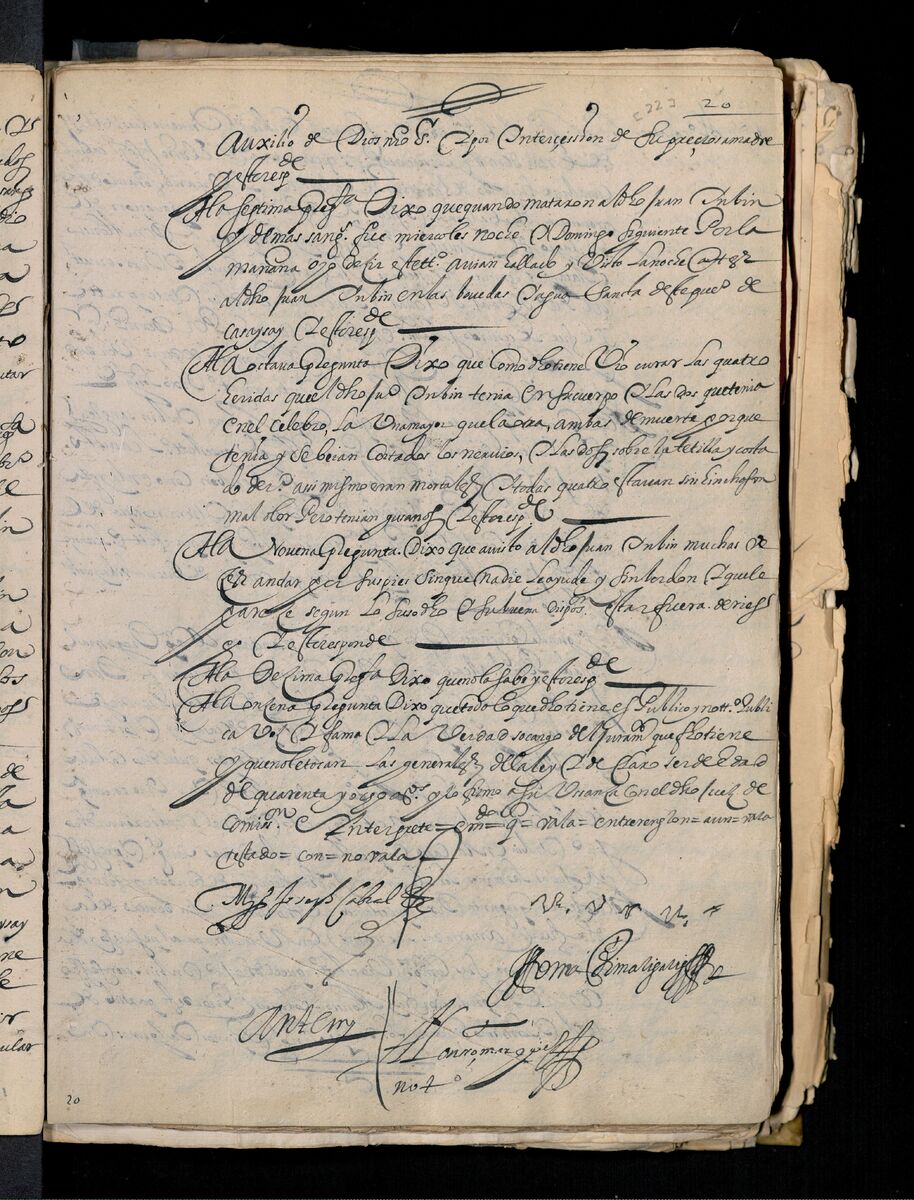 20
Auxilio de Dios nro Sr. y por Intercession de su preciosa madre
y esto respde
A la septima pregta Dixo que quando mataron al dho Juan Inbin
y demas sangs. fue miercoles noche y Domingo siguiente Por la
mañana oyo desir este tto. avian hallado y visto la noche antes
al dho Juan Inbin en las bouedas y agua Sancta deste pueo. de
Casaysay y esto respde
A la octava pregunta Dixo que como dho tiene vio curar las quatro
heridas que el dho Juo Inbin tenia en su cuerpo y las dos que tenia
en el celebro, la una mayor que la otra, ambas de muerte porque
tenia y se beian cortados los neruios, y las dos sobre la tetilla y costa
do dero. asi mismo eran mortales y todas quatro estauan sin hinchason
mal olor Pero tenian gusanos y esto respde
A la Novena pregunta. Dixo que a visto al dho Juan Inbin muchas ve
ses andar por sus pies sin que nadie le ayude y sin bordon y que le
parese segun lo susodho y su buena dispos. estar fuera de ries
go y esto responde
A la Dezima pregta Dixo que no la sabe y esto respde
A la onsena pregunta Dixo que todo lo que dho tiene es Publico y notto. Publi
ca vos y fama y la verdad so cargo del Juramto que fho tiene
y que no le tocan las generales de la ley y declaro ser de Edad
de quarenta y ocho as. y lo firmo a su usansa con el dho Juez de
comisson e Interprete = emdo = q = vala = entre renglon = aun = vala
testado = con = no vala
Joseph Cabral
Ante my
notto
20